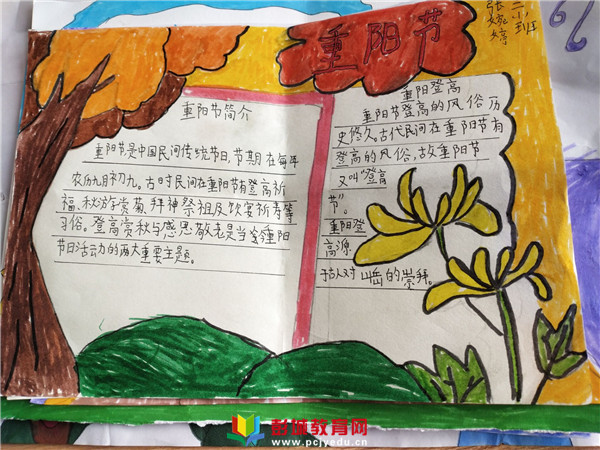 重阳节
二小班
张婉婷
重阳节简介
重阳节是中国民间传统节日,节期在每年
农历九月初九。古时民间在重阳节有登高祈
福、秋游赏菊、拜神祭祖及饮宴祈寿等
习俗。登高赏秋与感恩敬老是当今重阳
节日活动的两大重要主题。
重阳登高
重阳节登高的风俗历
史悠久。古代民间在重阳节有
登高的风俗,故重阳节
又叫“登高
节”。
重阳登
高源
于古人对山岳的崇拜。
彭城教育网
www.pcjyedu.cn